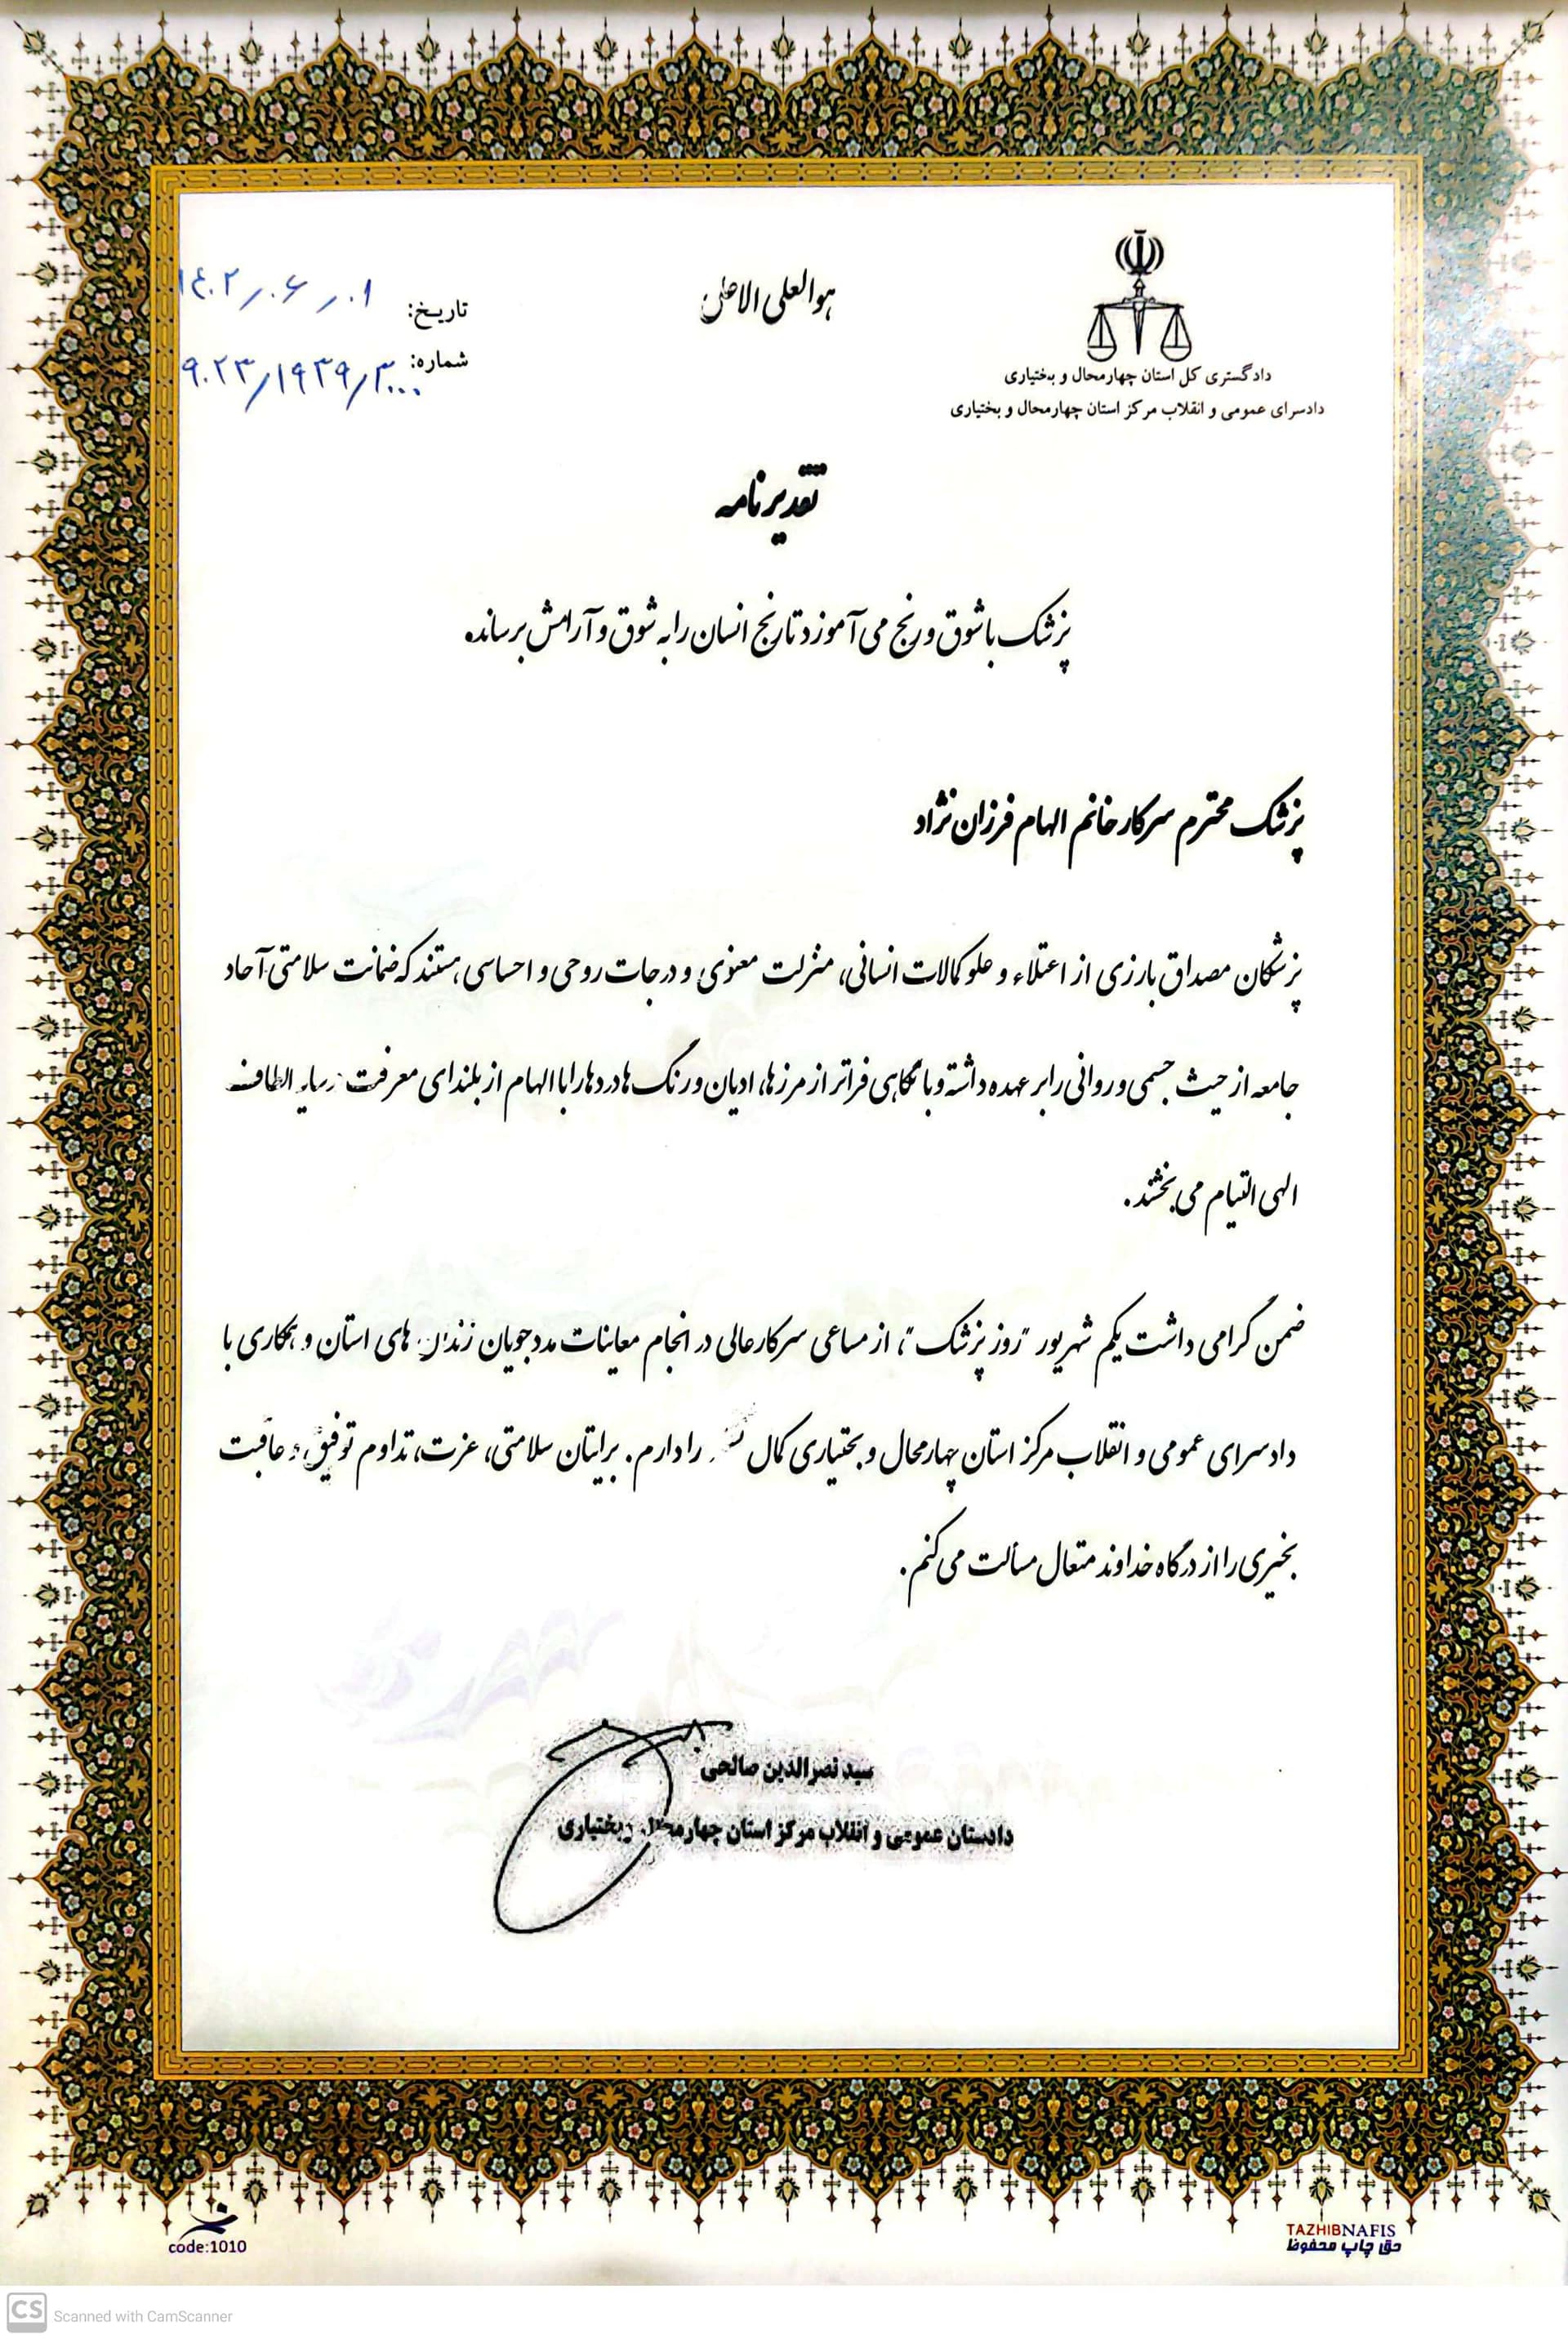 هوالعلی الاعلی
تاریخ: ۱۴۰۲/۰۶/۰۱
شماره: ۹۰۲۳/۱۹۳۹/۳۰۰۰
دادگستری کل استان چهارمحال و بختیاری
دادسرای عمومی و انقلاب مرکز استان چهارمحال و بختیاری
تقدیرنامه
پزشک با شوق و رنج می آموزد تا رنج انسان را به شوق و آرامش برساند.
پزشک محترم سرکار خانم الهام فرزان نژاد
پزشکان مصداق بارزی از اعتلاء و علو کمالات انسانی، منزلت معنوی و درجات روحی و احساسی هستند که ضمانت سلامتی آحاد
جامعه از حیث جسمی و روانی را بر عهده داشته و با نگاهی فراتر از مرزها، ادیان و رنگ ها دردها را با الهام از بلندای معرفت الطاف
الهی التیام می بخشند.
ضمن گرامی داشت یکم شهریور "روز پزشک"، از مساعی سرکارعالی در انجام معاینات مددجویان زندان های استان و همکاری با
دادسرای عمومی و انقلاب مرکز استان چهارمحال و بختیاری کمال را دارم. برایتان سلامتی، عزت، تداوم توفیق و عاقبت
بخیری را از درگاه خداوند متعال مسألت می کنم.
سید نصرالدین صالحی
دادستان عمومی و انقلاب مرکز استان چهارمحال و بختیاری
code:1010
TAZHIBNAFIS
حق چاپ محفوظ
CS Scanned with CamScanner